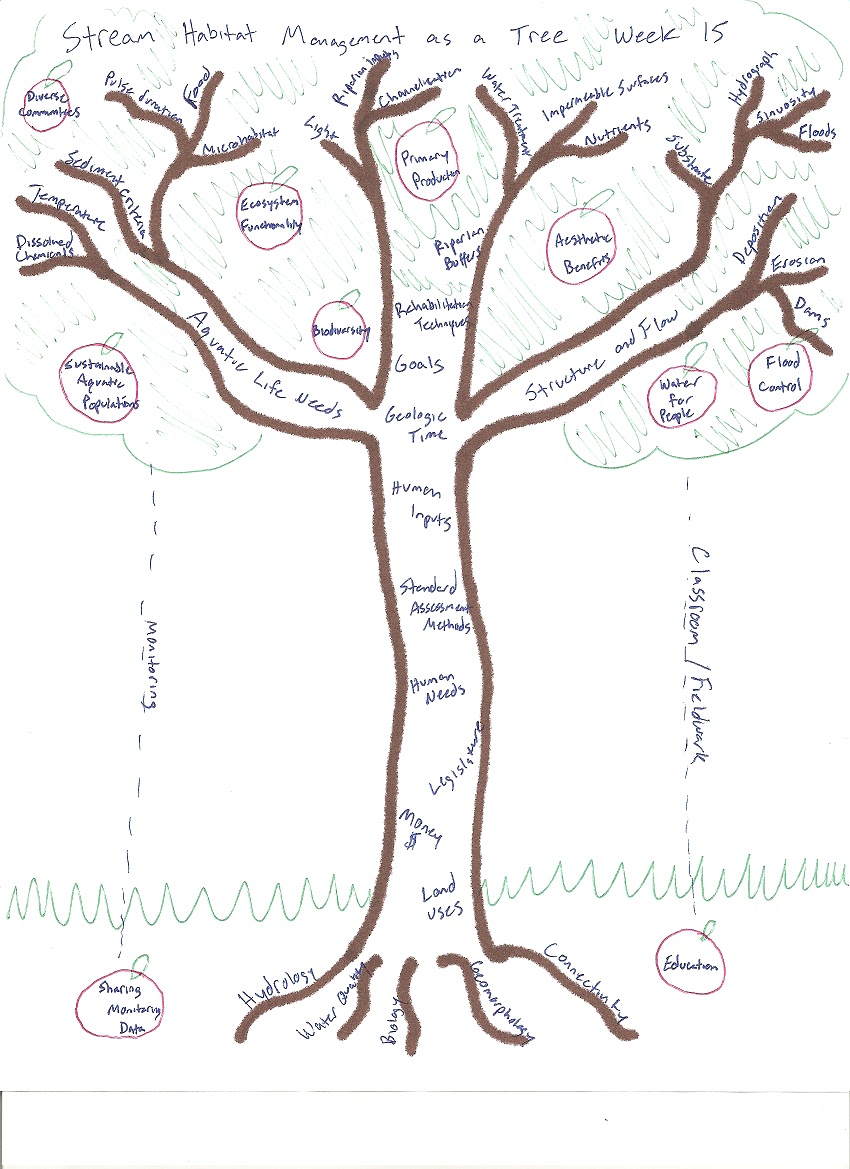 Stream Habitat Management as a Tree Week 15
Diverse
Communities
Pulse duration
Food
Microhabitat
Sediment Criteria
Temperature
Dissolved
Chemicals
Riparian Inputs
Channelization
Light
Primary
Production
Water Treatment
Impermeable Surfaces
Nutrients
Hydrograph
Sinuosity
Floods
Substrate
Ecosystem
Functionality
Riparian
Buffers
Aesthetic
Benefits
Deposition
Erosion
Dams
Biodiversity
Rehabilitation
Techniques
Sustainable
Aquatic
Populations
Aquatic Life Needs
Goals
Structure and Flow
Water
for
People
Flood
Control
Geologic
Time
Human
Inputs
Standard
Assessment
Methods
Monitoring
Classroom/Fieldwork
Human
Needs
Legislature
Money
$
Land
uses
Sharing
Monitoring
Data
Education
Hydrology
Water Quality
Biology
Geomorphology
Connectivity